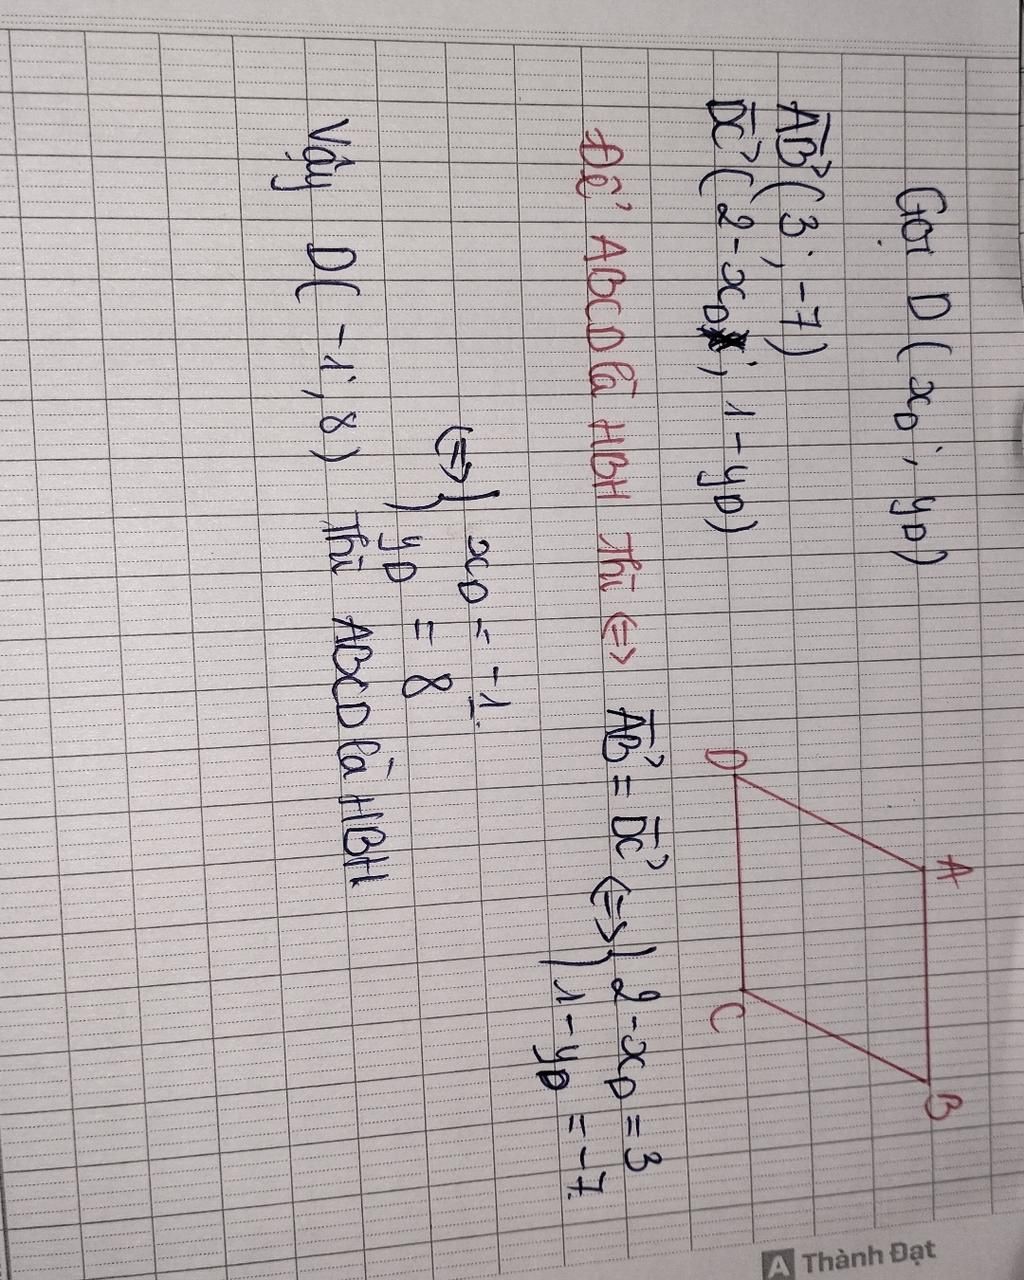 Gọi D ( xD ; yD )
A
B
D
C
AB→ ( 3 ; -7 )
DC→ ( 2 - xD ; 1 - yD )
Để ABCD là HBH Thì <=> AB→ = DC→ <=> { 2 - xD = 3
1 - yD = -7
<=> { xD = -1.
yD = 8
Vậy D( -1 ; 8 ) Thì ABCD là HBH
A Thành Đạt